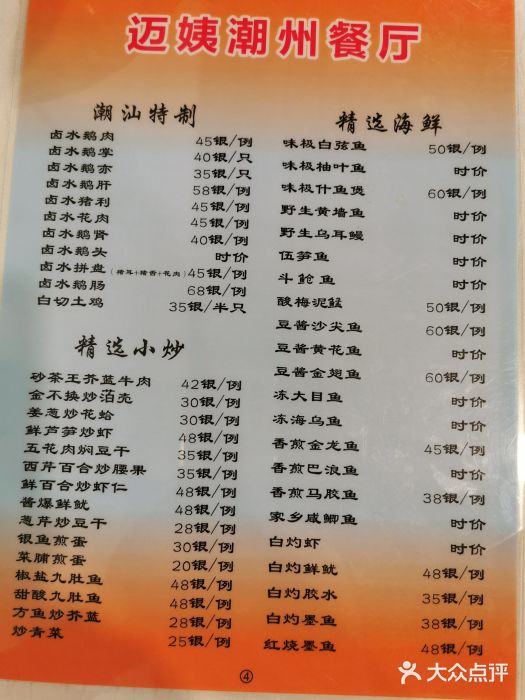 迈姨潮州餐厅
潮汕特制
卤水鹅肉 45银/例
卤水鹅掌 40银/只
卤水鹅亦 35银/只
卤水鹅肝 58银/例
卤水猪利 45银/例
卤水花肉 45银/例
卤水鹅肾 40银/例
卤水鹅头 时价
卤水拼盘（猪耳+猪香+花肉）45银/例
卤水鹅肠 68银/例
白切土鸡 35银/半只
精选小炒
砂茶王芥蓝牛肉 42银/例
金不换炒泊壳 30银/例
姜葱炒花蛤 30银/例
鲜芦笋炒虾 48银/例
五花肉焖豆干 35银/例
西芹百合炒腰果 35银/例
鲜百合炒虾仁 48银/例
酱爆鲜鱿 48银/例
葱芹炒豆干 28银/例
银鱼煎蛋 30银/例
菜脯煎蛋 20银/例
椒盐九肚鱼 48银/例
甜酸九肚鱼 48银/例
方鱼炒芥蓝 28银/例
炒青菜 25银/例
精选海鲜
味极白弦鱼 50银/例
味极柚叶鱼 时价
味极什鱼煲 60银/例
野生黄墙鱼 时价
野生乌耳鳗 时价
伍笋鱼 时价
斗鲳鱼 时价
酸梅泥鯭 50银/例
豆酱沙尖鱼 60银/例
豆酱黄花鱼 时价
豆酱金翅鱼 60银/例
冻大目鱼 时价
冻海乌鱼 时价
香煎金龙鱼 45银/例
香煎巴浪鱼 时价
香煎马胶鱼 38银/例
家乡咸鲫鱼 时价
白灼虾 时价
白灼鲜鱿 48银/例
白灼胶水 35银/例
白灼墨鱼 38银/例
红烧墨鱼 48银/例
④
大众点评